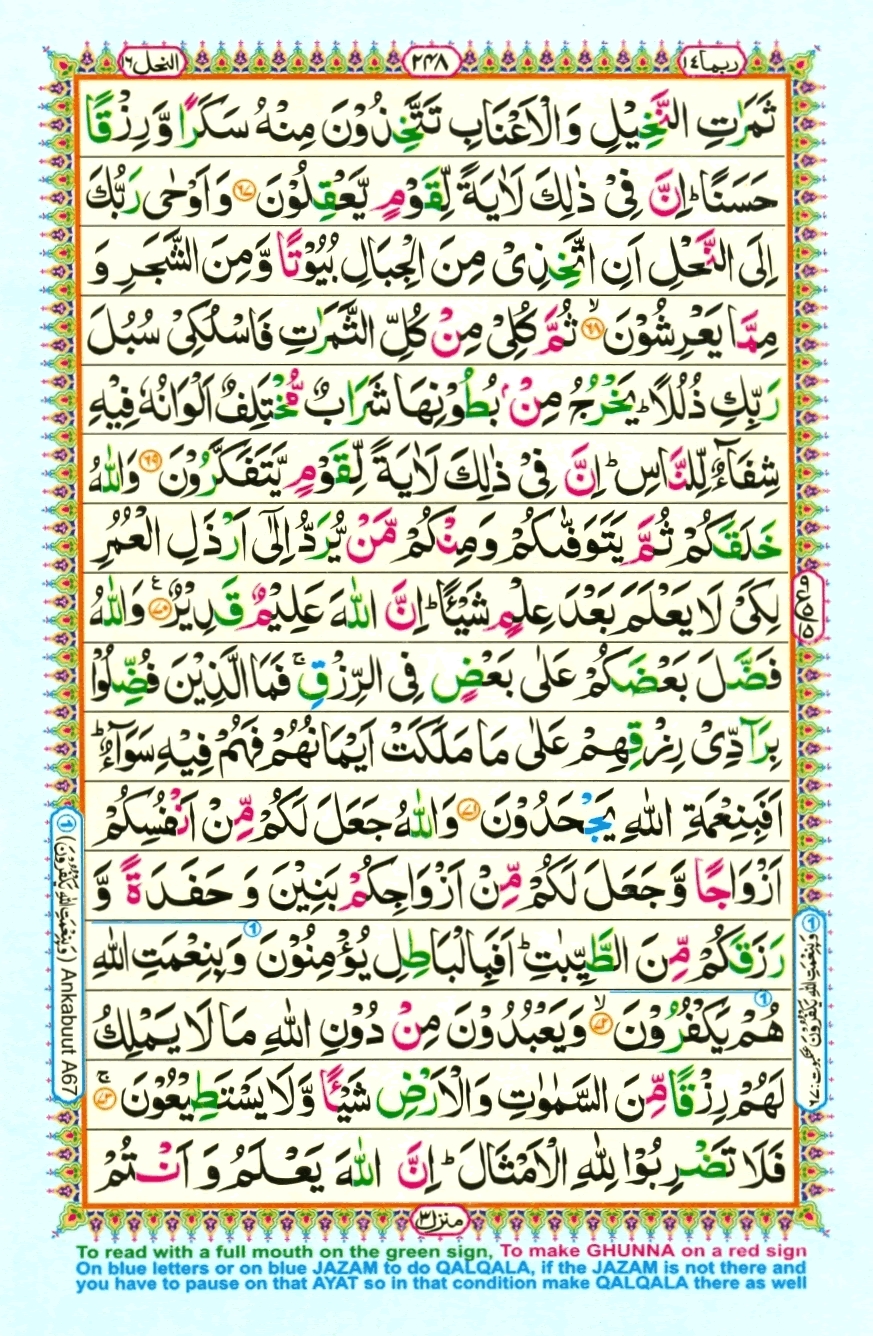 ربما ١٤
٢٤٨
النحل ١٦
ثَمَرٰتِ النَّخِيْلِ وَالْاَعْنَابِ تَتَّخِذُوْنَ مِنْهُ سَكَرًا وَّرِزْقًا
حَسَنًاؕ اِنَّ فِيْ ذٰلِكَ لَاٰيَةً لِّقَوْمٍ يَّعْقِلُوْنَ ﴿۶۷﴾ وَاَوْحٰى رَبُّكَ
اِلَى النَّحْلِ اَنِ اتَّخِذِىْ مِنَ الْجِبَالِ بُيُوْتًا وَّمِنَ الشَّجَرِ وَ
مِمَّا يَعْرِشُوْنَ ﴿۶۸﴾ۙ ثُمَّ كُلِىْ مِنْ كُلِّ الثَّمَرٰتِ فَاسْلُكِىْ سُبُلَ
رَبِّكِ ذُلُلًاؕ يَخْرُجُ مِنْۢ بُطُوْنِهَا شَرَابٌ مُّخْتَلِفٌ اَلْوَانُهٗ فِيْهِ
شِفَآءٌ لِّلنَّاسِؕ اِنَّ فِيْ ذٰلِكَ لَاٰيَةً لِّقَوْمٍ يَّتَفَكَّرُوْنَ ﴿۶۹﴾ وَاللّٰهُ
خَلَقَكُمْ ثُمَّ يَتَوَفّٰىكُمْ وَمِنْكُمْ مَّنْ يُّرَدُّ اِلٰٓى اَرْذَلِ الْعُمُرِ
لِكَىْ لَا يَعْلَمَ بَعْدَ عِلْمٍ شَيْـًٔاؕ اِنَّ اللّٰهَ عَلِيْمٌ قَدِيْرٌ ﴿۷۰﴾ وَاللّٰهُ
فَضَّلَ بَعْضَكُمْ عَلٰى بَعْضٍ فِى الرِّزْقِۚ فَمَا الَّذِيْنَ فُضِّلُوْا
بِرَآدِّىْ رِزْقِهِمْ عَلٰى مَا مَلَكَتْ اَيْمَانُهُمْ فَهُمْ فِيْهِ سَوَآءٌؕ
اَفَبِنِعْمَةِ اللّٰهِ يَجْحَدُوْنَ ﴿۷۱﴾ وَاللّٰهُ جَعَلَ لَكُمْ مِّنْ اَنْفُسِكُمْ
اَزْوَاجًا وَّجَعَلَ لَكُمْ مِّنْ اَزْوَاجِكُمْ بَنِيْنَ وَ حَفَدَةً وَّ
رَزَقَكُمْ مِّنَ الطَّيِّبٰتِؕ اَفَبِالْبَاطِلِ يُؤْمِنُوْنَ وَبِنِعْمَتِ اللّٰهِ
هُمْ يَكْفُرُوْنَ ﴿۷۲﴾ۙ وَيَعْبُدُوْنَ مِنْ دُوْنِ اللّٰهِ مَا لَا يَمْلِكُ
لَهُمْ رِزْقًا مِّنَ السَّمٰوٰتِ وَالْاَرْضِ شَيْـًٔا وَّلَا يَسْتَطِيْعُوْنَ ﴿۷۳﴾ۚ
فَلَا تَضْرِبُوْا لِلّٰهِ الْاَمْثَالَؕ اِنَّ اللّٰهَ يَعْلَمُ وَ اَنْتُمْ
منزل ٣
ع ٩ ٥ ١٥
① وَبِنِعْمَتِ اللّٰهِ يَكْفُرُوْنَ عنكبوت: ٦٧
① (وَبِنِعْمَتِ اللّٰهِ يَكْفُرُوْنَ) Ankabuut A67
To read with a full mouth on the green sign, To make GHUNNA on a red sign
On blue letters or on blue JAZAM to do QALQALA, if the JAZAM is not there and
you have to pause on that AYAT so in that condition make QALQALA there as well